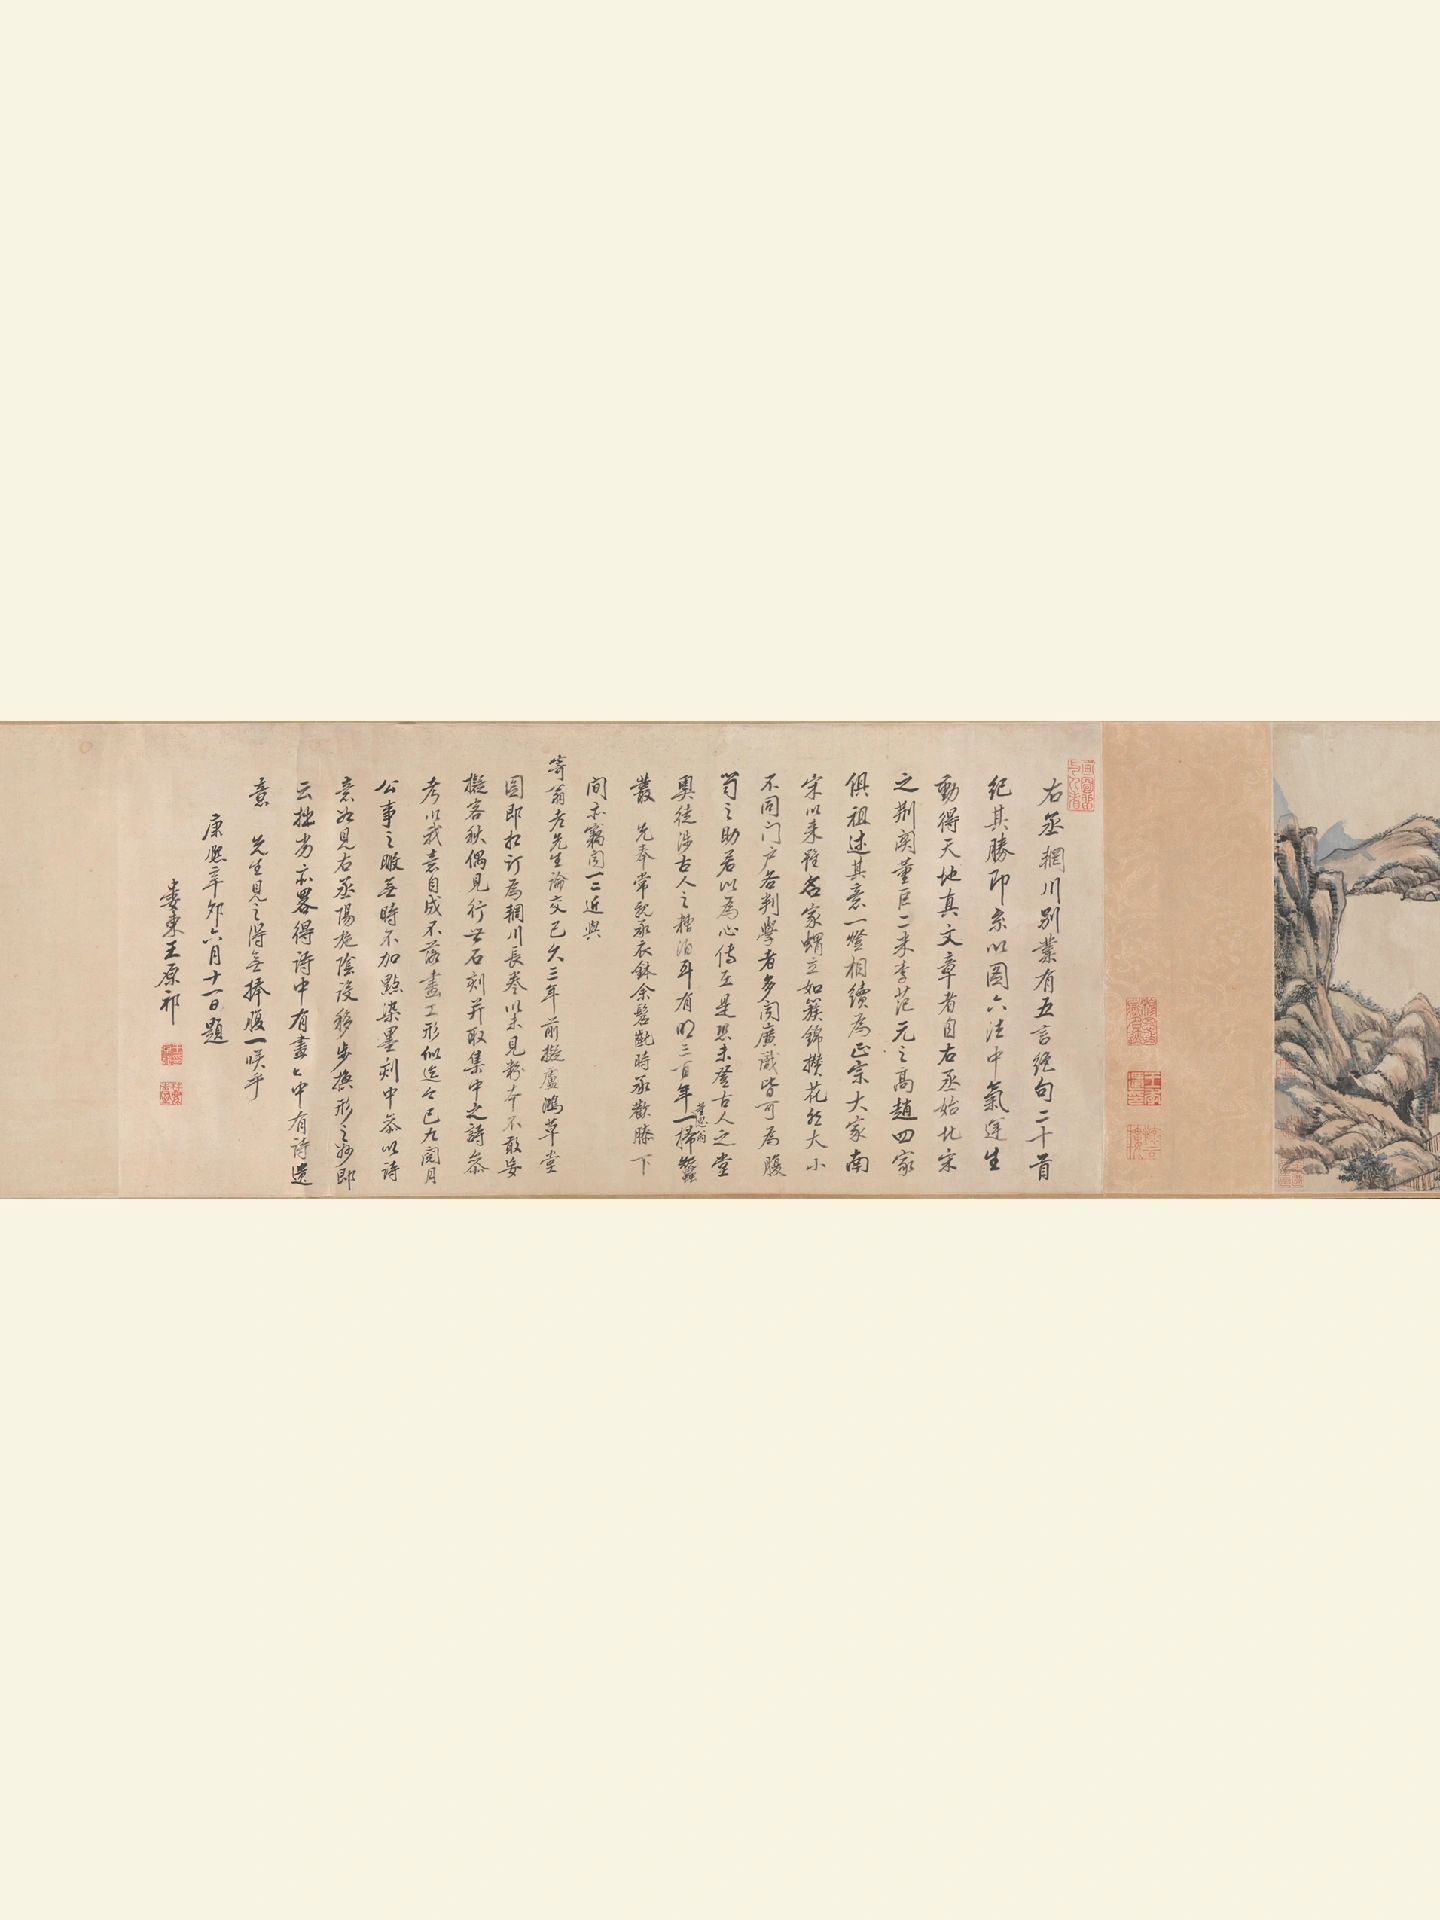 右丞輞川別業有五言絕句二十首
紀其勝即系以圖六法中氣運生
動得天地真文章者自右丞始北宋
之荆關董巨二米李范元之高趙四家
俱祖述其意一燈相續為正宗大家南
宋以來雖名家蝟立如簇錦攢花然大小
不同門户各判學者多聞廣識皆可為腹
笥之助若以為心傳在是恐未登古人之堂
奧徒涉古人之糟泊耳有明三百年一掃蠶
董思翁
叢 先奉常親承衣鉢余髫齔時承歡膝下
間亦竊聞一二近與
寄翁老先生論交已久三年前擬盧鴻草堂
圖即相訂為輞川長卷以未見粉本不敢妄
擬客秋偶見行世石刻并取集中之詩參
考以我意自成不落畫工形似迄今已九閱月
公事之暇無時不加點染墨刻中參以詩
意如見右丞陽施陰設移步換形之妙即
云拙劣亦畧得詩中有畫畫中有詩遺
意 先生見之得無捧腹一唉乎
康熙辛卯六月十一日題
婁東王原祁